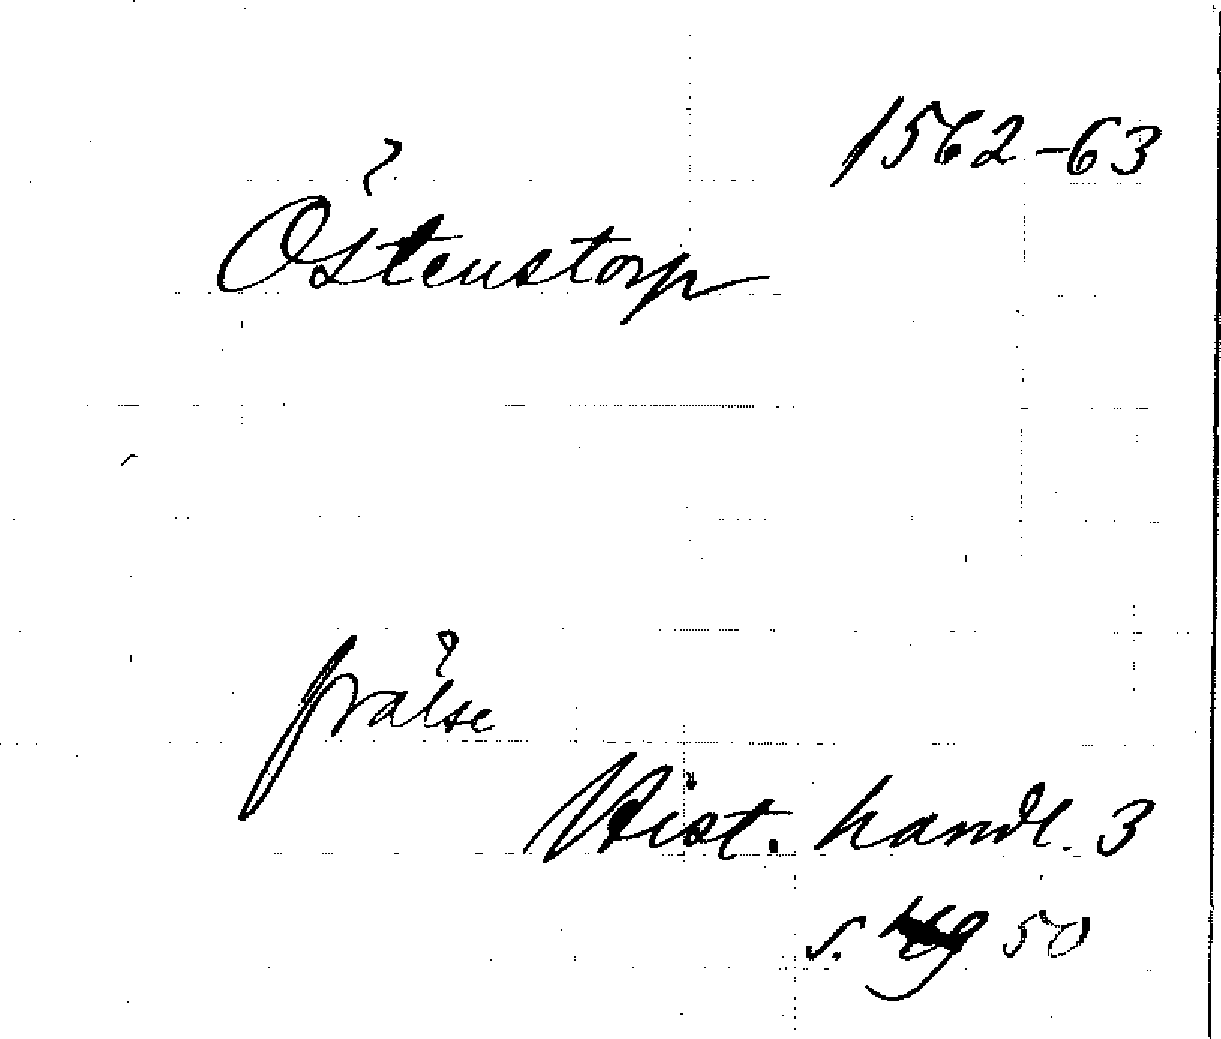 1562-63
Östenstorp
frälse
Hist. handl. 3
s. 50